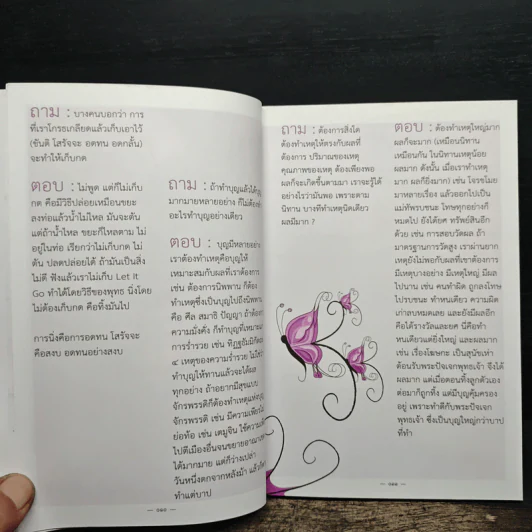 ถาม : บางคนบอกว่า การ
ที่เราโกรธเกลียดแล้วเก็บเอาไว้
(ขันติ โสรัจจะ อดทน อดกลั้น)
จะทำให้เก็บกด
ตอบ : ไม่พูด แต่ก็ไม่เก็บ
กด คือมีวิธีปล่อยเหมือนขยะ
ลงท่อแล้วน้ำไม่ไหล มันจะตัน
แต่ถ้าน้ำไหล ขยะก็ไหลตาม ไม่
อยู่ในท่อ เรียกว่าไม่เก็บกด ไม่
ตัน ปลดปล่อยได้ ถ้ามันเป็นสิ่ง
ไม่ดี ฟังแล้วเราไม่เก็บ Let It
Go ทำได้โดยวิธีของพุทธ นิ่งโดย
ไม่ต้องเก็บกด คือทิ้งมันไป
การนิ่งคือการอดทน โสรัจจะ
คือสงบ อดทนอย่างสงบ
ถาม : ถ้าทำบุญแล้วได้
มากมายหลายอย่าง ก็ไม่ต้อง
อะไรทำบุญอย่างเดียว
ตอบ : บุญมีหลายอย่าง
เราต้องทำเหตุคือบุญให้
เหมาะสมกับผลที่เราต้องการ
เช่น ต้องการนิพพาน ก็ต้อง
ทำเหตุซึ่งเป็นบุญไปถึงนิพพาน
คือ ศีล สมาธิ ปัญญา ถ้าต้อง
ความมั่งคั่ง ก็ทำบุญที่เหมาะ
การร่ำรวย เช่น ทิฏฐธัมมิกัตถ
๔ เหตุของความร่ำรวย ไม่ใช่
ทำบุญให้ทานแล้วจะได้ผล
ทุกอย่าง ถ้าอยากมีสุขแบบ
จักรพรรดิก็ต้องทำเหตุแห่ง
จักรพรรดิ เช่น มีความเพียร
ย่อท้อ เช่น เตมูจิน ใช้ความ
ไปตีเมืองอื่นจนขยายอาณา
ได้มากมาย แต่ก็ว่างเปล่า
วันหนึ่งตกจากหลังม้า แล้ว
ทำแต่บาป
ถาม : ต้องการสิ่งใด
ต้องทำเหตุให้ตรงกับผลที่
ต้องการ ปริมาณของเหตุ
คุณภาพของเหตุ ต้องเพียงพอ
ผลก็จะเกิดขึ้นตามมา เราจะรู้ได้
อย่างไรว่ามันพอ เพราะตาม
นิทาน บางทีทำเหตุนิดเดียว
ผลมีมาก ?
ตอบ : ต้องทำเหตุใหญ่มาก
ผลก็จะมาก (เหมือนนิทาน
เหมือนกัน ในนิทานเหตุน้อย
ผลมาก ดังนั้น เมื่อเราทำเหตุ
มาก ผลก็ยิ่งมาก) เช่น โจรขโมย
มาหลายเรื่อง แล้วออกไปเป็น
แม่ทัพรบชนะ โทษทุกอย่างก็
หมดไป ยังได้ยศ ทรัพย์สินอีก
ด้วย เช่น การสอบวัดผล ถ้า
มาตรฐานการวัดสูง เราผ่านยาก
เหตุยังไม่พอกับผลที่เราต้องการ
มีเหตุบางอย่าง มีเหตุใหญ่ มีผล
ไปนาน เช่น คนทำผิด ถูกลงโทษ
ไปรบชนะ ทำหนเดียว ความผิด
เก่าลบหมดเลย และยังมีผลอีก
คือได้รางวัลและยศ นี่คือทำ
หนเดียวแต่ยิ่งใหญ่ และผลมาก
เช่น เรื่องโฆษกะ เป็นสุนัขเห่า
ต้อนรับพระปัจเจกพุทธเจ้า จึงได้
ผลมาก แต่เมื่อตอนทิ้งลูกตัวเอง
ต่อมาก็ถูกทิ้ง แต่มีบุญคุ้มครอง
อยู่ เพราะทำดีกับพระปัจเจก
พุทธเจ้า ซึ่งเป็นบุญใหญ่กว่าบาป
ที่ทำ